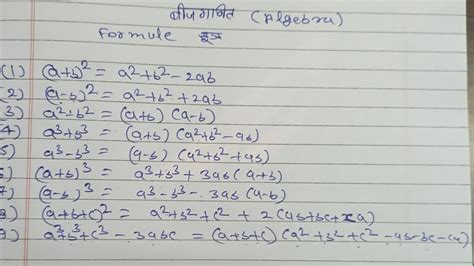 बीजगणित (Algebra)
Formule सूत्र
(1) (a+b)² = a²+b²-2ab
(2) (a-b)² = a²+b²+2ab
3) a²-b² = (a+b) (a-b)
4) a³+b³ = (a+b) (a²+b²-ab)
5) a³-b³ = (a-b) (a²+b²+ab)
6) (a+b)³ = a³+b³+3ab(a+b)
7) (a-b)³ = a³-b³-3ab(a-b)
8) (a+b+c)² = a²+b²+c²+2(ab+bc+ca)
9) a³+b³+c³-3abc = (a+b+c) (a²+b²+c²-ab-bc-ca)